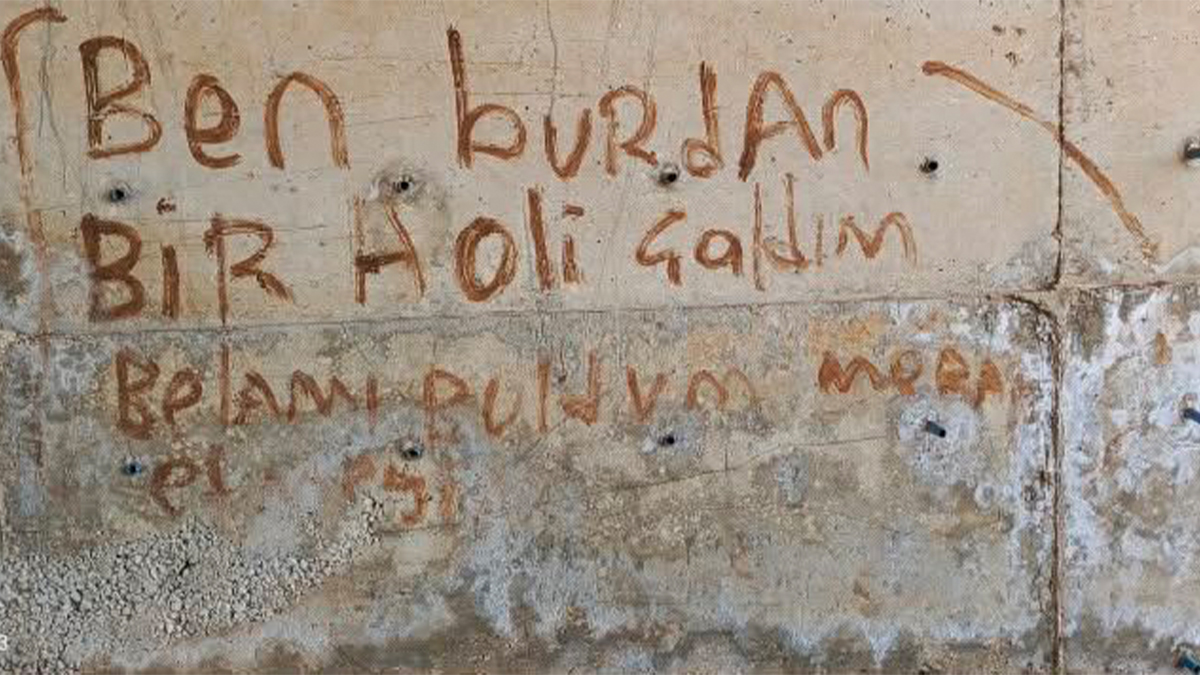 Ben burdAn
BiR Holi çaldım
Belamı buldum